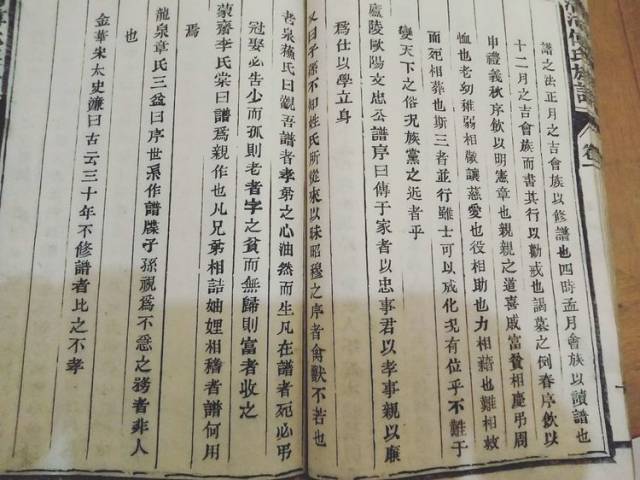 氏族譜
卷一
譜之法正月之吉會族以修譜也四時孟月會族以讀譜也
十二月之吉會族而書其行以勸戒也謁墓之例春序飲以
申禮義秋序飲以明憲章也親親之道喜戚富貧相慶弔周
恤也老幼稚弱相敬讓慈愛也役相助也力相藉也難相救
而死相葬也斯三者並行雖士可以成化况有位乎不難于
變天下之俗况族黨之近者乎
廬陵歐陽文忠公譜序曰傳于家者以忠事君以孝事親以廉
爲仕以學立身
又曰子孫不知姓氏所從來以昧昭穆之序者禽獸不若也
老泉蘇氏曰觀吾譜者孝弟之心油然而生凡在譜者死必弔
冠娶必告少而孤則老者字之貧而無歸則富者收之
蒙齋李氏棠曰譜爲親作也凡兄弟相詰妯娌相稽者譜何用
焉
龍泉章氏三益曰序世系作譜牒子孫視爲不急之務者非人
也
金華宋太史濂曰古云三十年不修譜者比之不孝